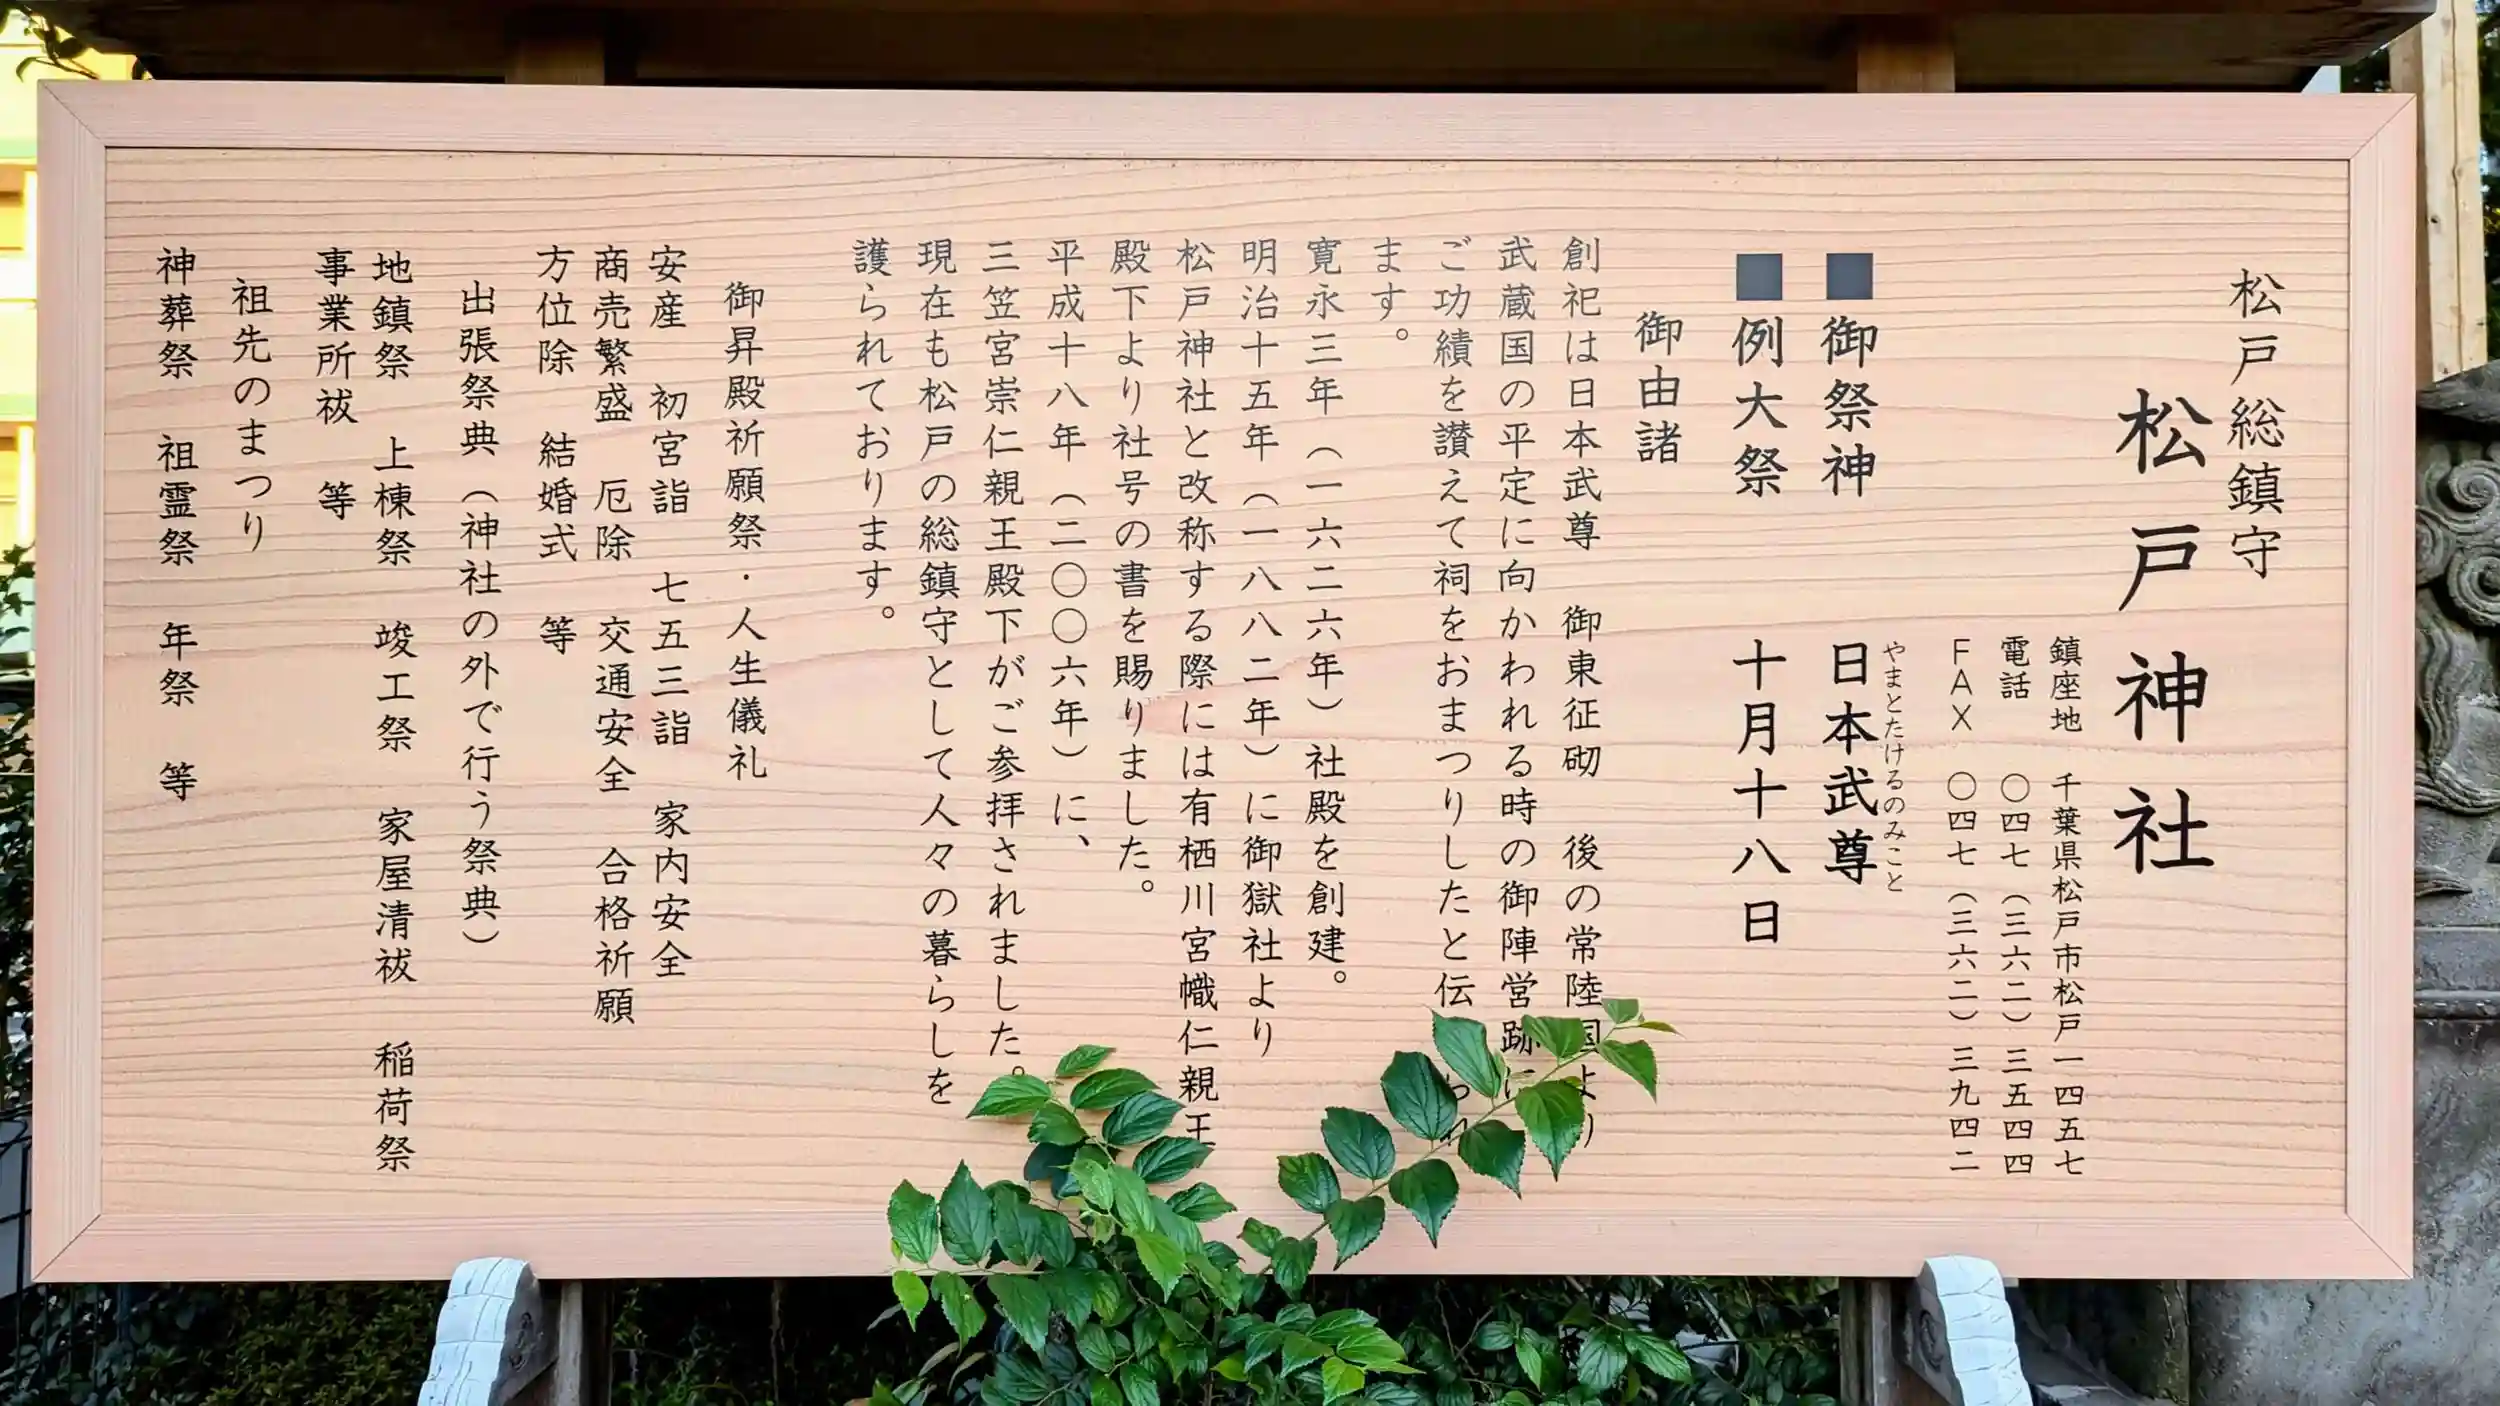 松戸総鎮守
松戸神社
鎮座地 千葉県松戸市松戸一四五七
電話 〇四七（三六二）三五四四
FAX 〇四七（三六二）三九四二
■御祭神 日本武尊
やまとたけるのみこと
■例大祭 十月十八日
御由諸
創祀は日本武尊 御東征砌 後の常陸国より
武蔵国の平定に向かわれる時の御陣営跡に
ご功績を讃えて祠をおまつりしたと伝られ
ます。
寛永三年（一六二六年）社殿を創建。
明治十五年（一八八二年）に御獄社より
松戸神社と改称する際には有栖川宮幟仁親王
殿下より社号の書を賜りました。
平成十八年（二〇〇六年）に、
三笠宮崇仁親王殿下がご参拝されました。
現在も松戸の総鎮守として人々の暮らしを
護られております。
御昇殿祈願祭・人生儀礼
安産 初宮詣 七五三詣 家内安全
商売繁盛 厄除 交通安全 合格祈願
方位除 結婚式 等
出張祭典（神社の外で行う祭典）
地鎮祭 上棟祭 竣工祭 家屋清祓 稲荷祭
事業所祓 等
祖先のまつり
神葬祭 祖霊祭 年祭 等